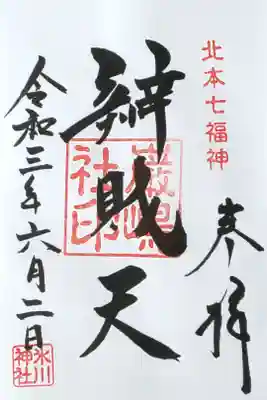 北本七福神
奉拝
辨財天
厳嶋社印
令和三年六月二日
氷川神社